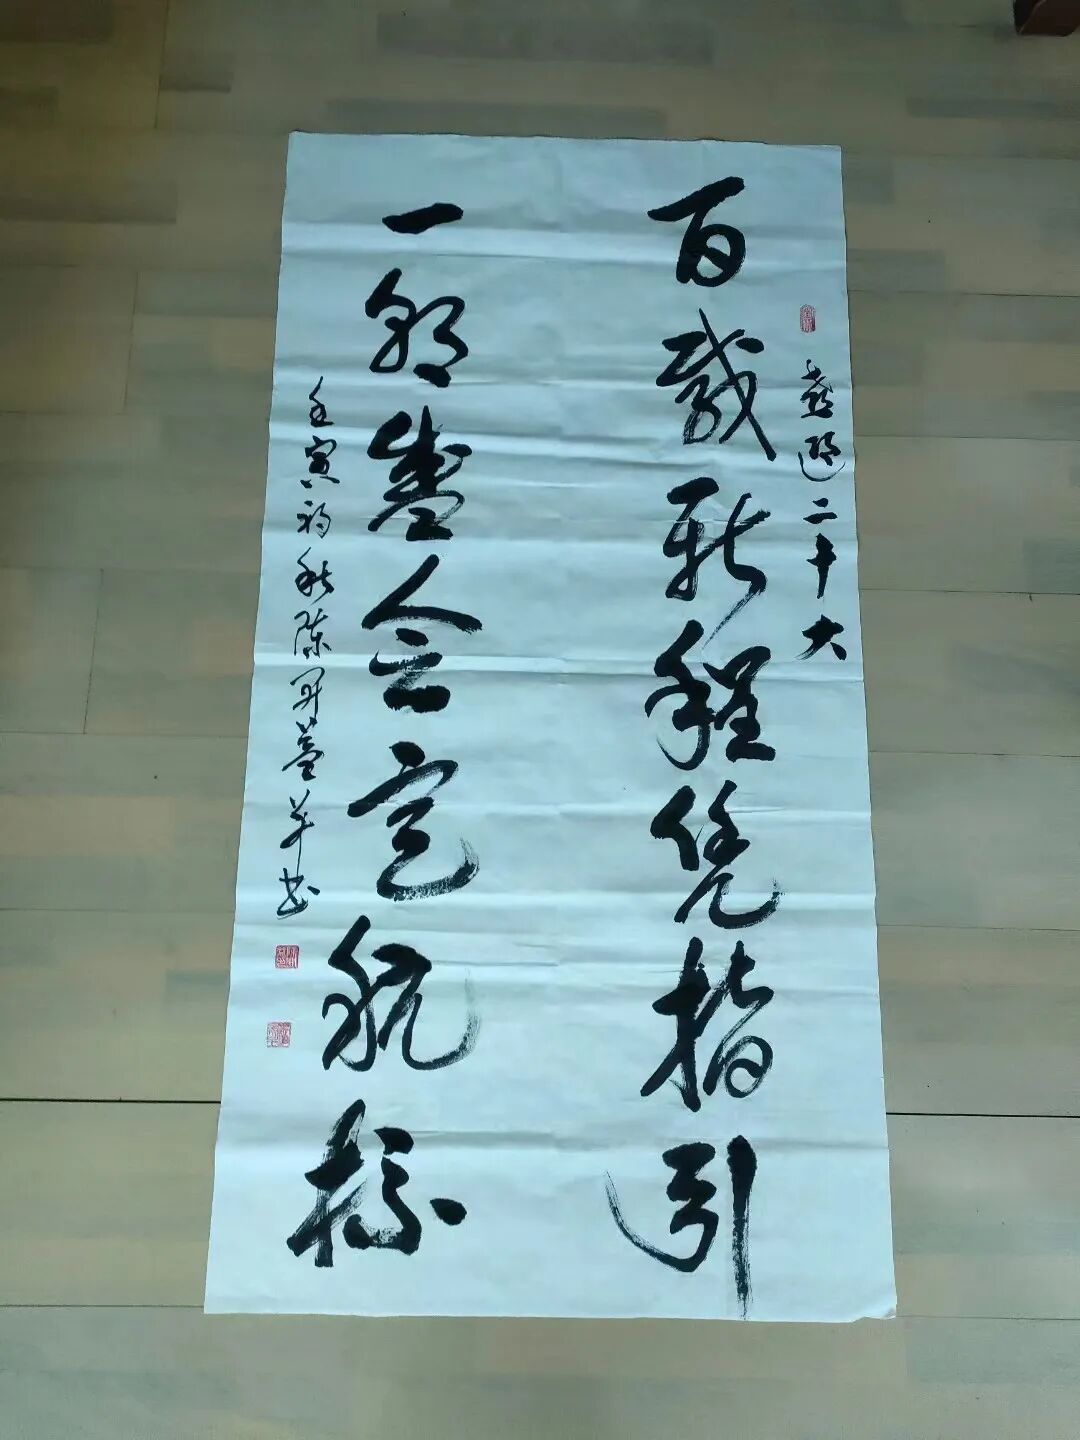 喜迎二十大
百载新程凭指引
一部盛会定航标
壬寅初秋陈开益并书